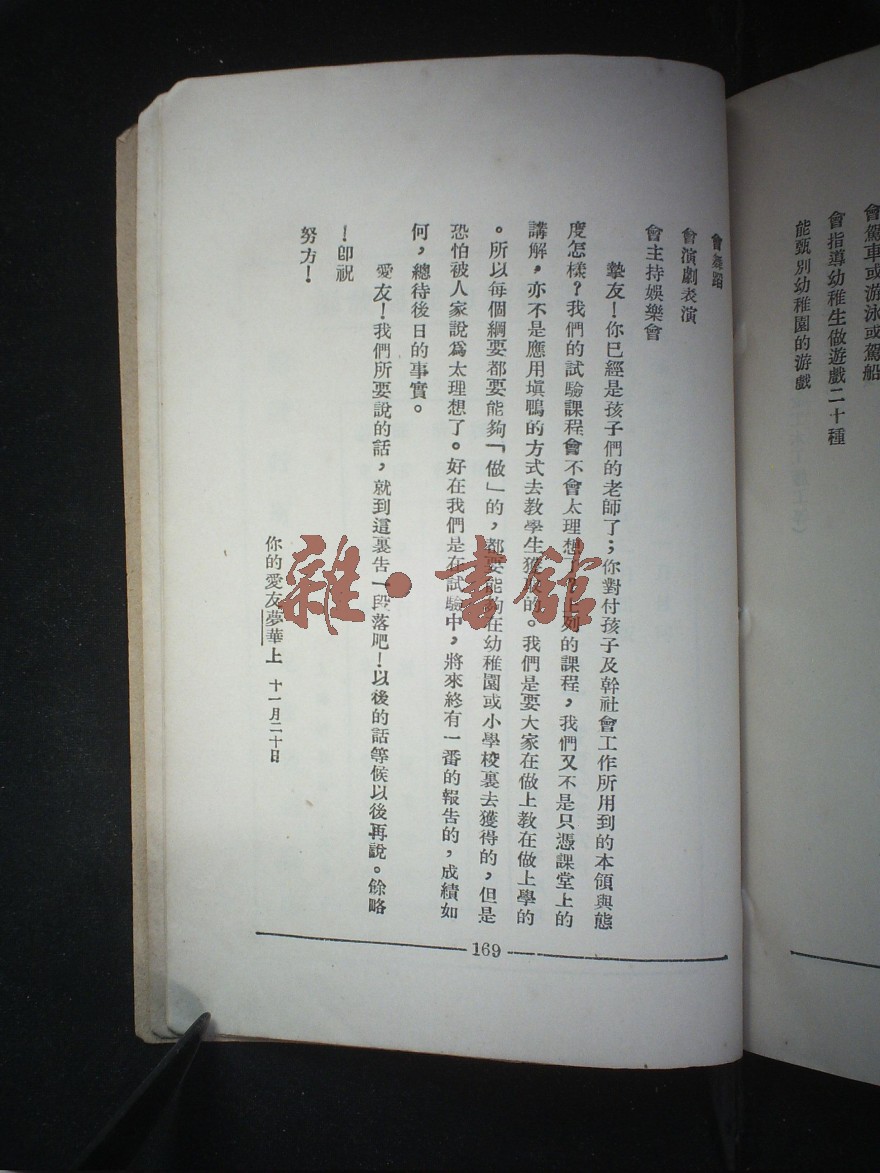 會駕車或游泳或駕船
會指導幼稚生做遊戲二十種
能甄別幼稚園的游戲
會舞蹈
會演劇表演
會主持娛樂會
摯友！你已經是孩子們的老師了；你對付孩子及幹社會工作所用到的本領與態
度怎樣？我們的試驗課程會不會太理想 上列的課程，我們又不是只憑課堂上的
講解，亦不是應用塡鴨的方式去教學生獲 的。我們是要大家在做上教在做上學的
。所以每個綱要都要能夠「做」的，都要能夠在幼稚園或小學校裏去獲得的，但是
恐怕被人家說爲太理想了。好在我們是在試驗中，將來終有一番的報告的，成績如
何，總待後日的事實。
愛友！我們所要說的話，就到這裏告一段落吧！以後的話等候以後再說。餘略
！卽祝
努方！
你的愛友夢華上 十一月二十日
169
雜·書館